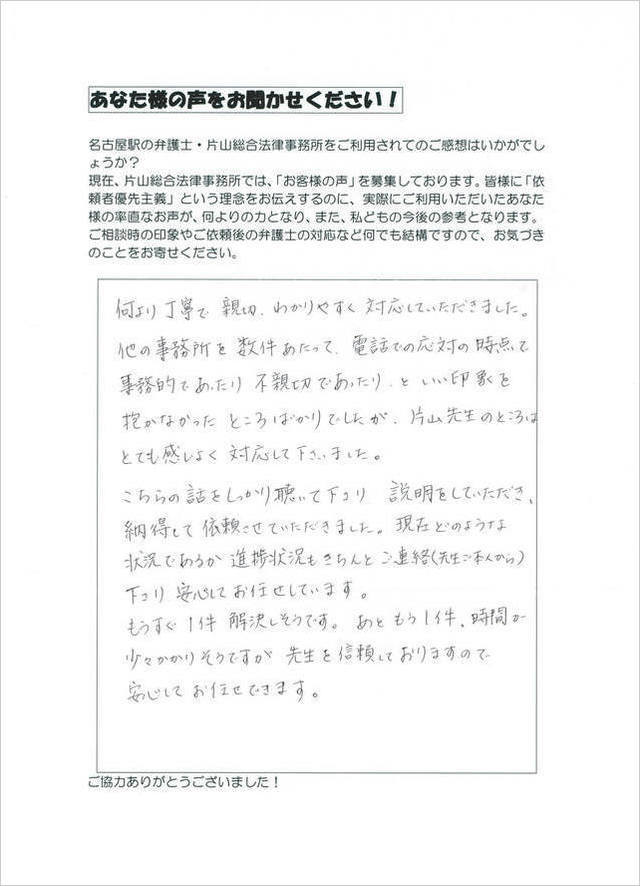 あなた様の声をお聞かせください!
名古屋駅の弁護士・片山総合法律事務所をご利用されてのご感想はいかがでし
ょうか?
現在、片山総合法律事務所では、「お客様の声」を募集しております。皆様に「依
頼者優先主義」という理念をお伝えするのに、実際にご利用いただいたあなた
様の率直なお声が、何よりの力となり、また、私どもの今後の参考となります。
ご相談時の印象やご依頼後の弁護士の対応など何でも結構ですので、お気づき
のことをお寄せください。
何より丁寧で 親切、わかりやすく 対応していただきました。
他の事務所を 数件あたって、電話での応対の時点で
事務的であったり 不親切であったり、と いい印象を
抱かなかった ところばかりでしたが、片山先生のところは
とても感じよく 対応して下さいました。
こちらの話をしっかり聴いて下さり 説明をしていただき、
納得して依頼させていただきました。現在どのような
状況であるか 進捗状況もきちんと ご連絡(先生ご本人から)
下さり 安心してお任せしています。
もうすぐ1件 解決しそうです。あと もう1件、時間が
少々かかりそうですが 先生を信頼しておりますので
安心して お任せできます。
ご協力ありがとうございました!